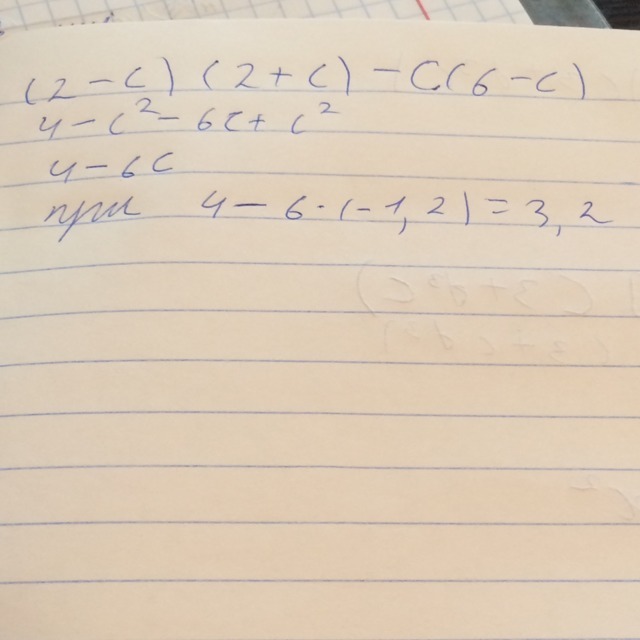 (2-c) (2+c) -c(6-c)
4-c²-6c+c²
4-6c
при 4-6·(-1,2)=3,2